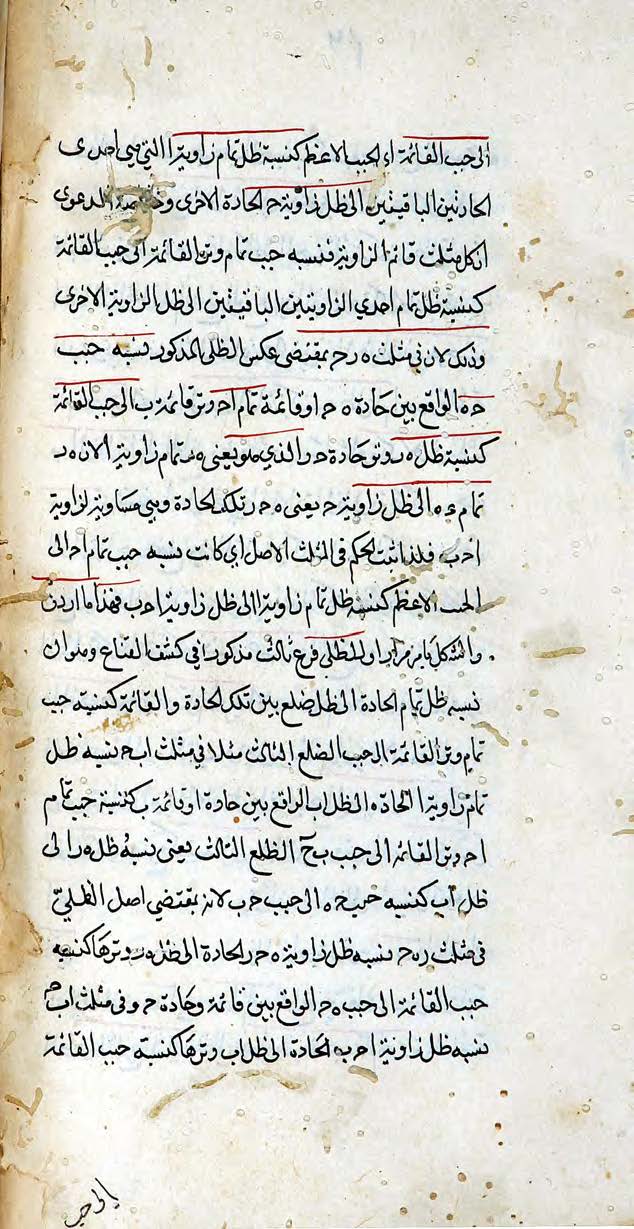 الى جيب القائمة اء الجيب الاعظم كنسبة ظل تمام زاوية ا التي هي احدى
الحادتين الباقيتين الى ظل زاوية ح الحادة الاخرى الدعوى
ان كل مثلث قائم الزاوية فنسبه جيب تمام وتر القائمة الى جيب القائمة
كنسبة ظل تمام احدي الزاويتين الباقيتين الى ظل الزاوية الاخرى
وذلك لان في مثلث ه ر ح بمقتضى عكس الظلى المذكور نسبه جيب
ح ه الواقع بين حادة ه ح ا وقائمة تمام ا ح وتر قائمة ب الى جيب القائمة
كنسبة ظل ه ر وتر حادة ح ر الذي هو يعنى ه ر تمام زاوية ا لان ه ر
تمام ء ه الى ظل زاوية ح يعنى ه ح ر تلك الحادة وهي مساوية لزاوية
ا ح ب فلذا ثبت الحكم فى المثلث الاصل اي كانت نسبه جيب تمام ا ح الى
الجيب الاعظم كنسبه ظل تمام زاوية ا الى ظل زاوية ا ح ب فهذا ما اردن
والشكل بامر مرارا وللظلى فرع ثالث مذكور فى كشف القناع وهو ان
نسبه ظل تمام الحادة الى ظل ضلع بين تلك الحادة والقائمة كنسبته جيب
تمام وتر القائمة الى جيب الضلع الثالث مثلا في مثلث اب ح نسبه ظل
تمام زاوية ا الحادة الى ظل اب الواقع بين حادة ا وقائمة ب كنسبة جيب تمام
ا ح وتر القائمه الى جيب ب ح الظلع الثالث يعنى نسبة ظل ه ر الى
ظل اب كنسبه جيب ح ه الى جيب ح ب لانه بمقتضي اصل الظليّ
فى مثلث ر ه ح نسبه ظل زاوية ه ح ر الحادة الى ظل ه ر وترها كنسبه
جيب القائمة الى جيب ه ح الواقع بين قائمة وحادة ح وفى مثلث اب ح
نسبه ظل زاوية ا ح ب الحادة الى ظل اب وترها كنسبة جيب القائمة
الى جيب